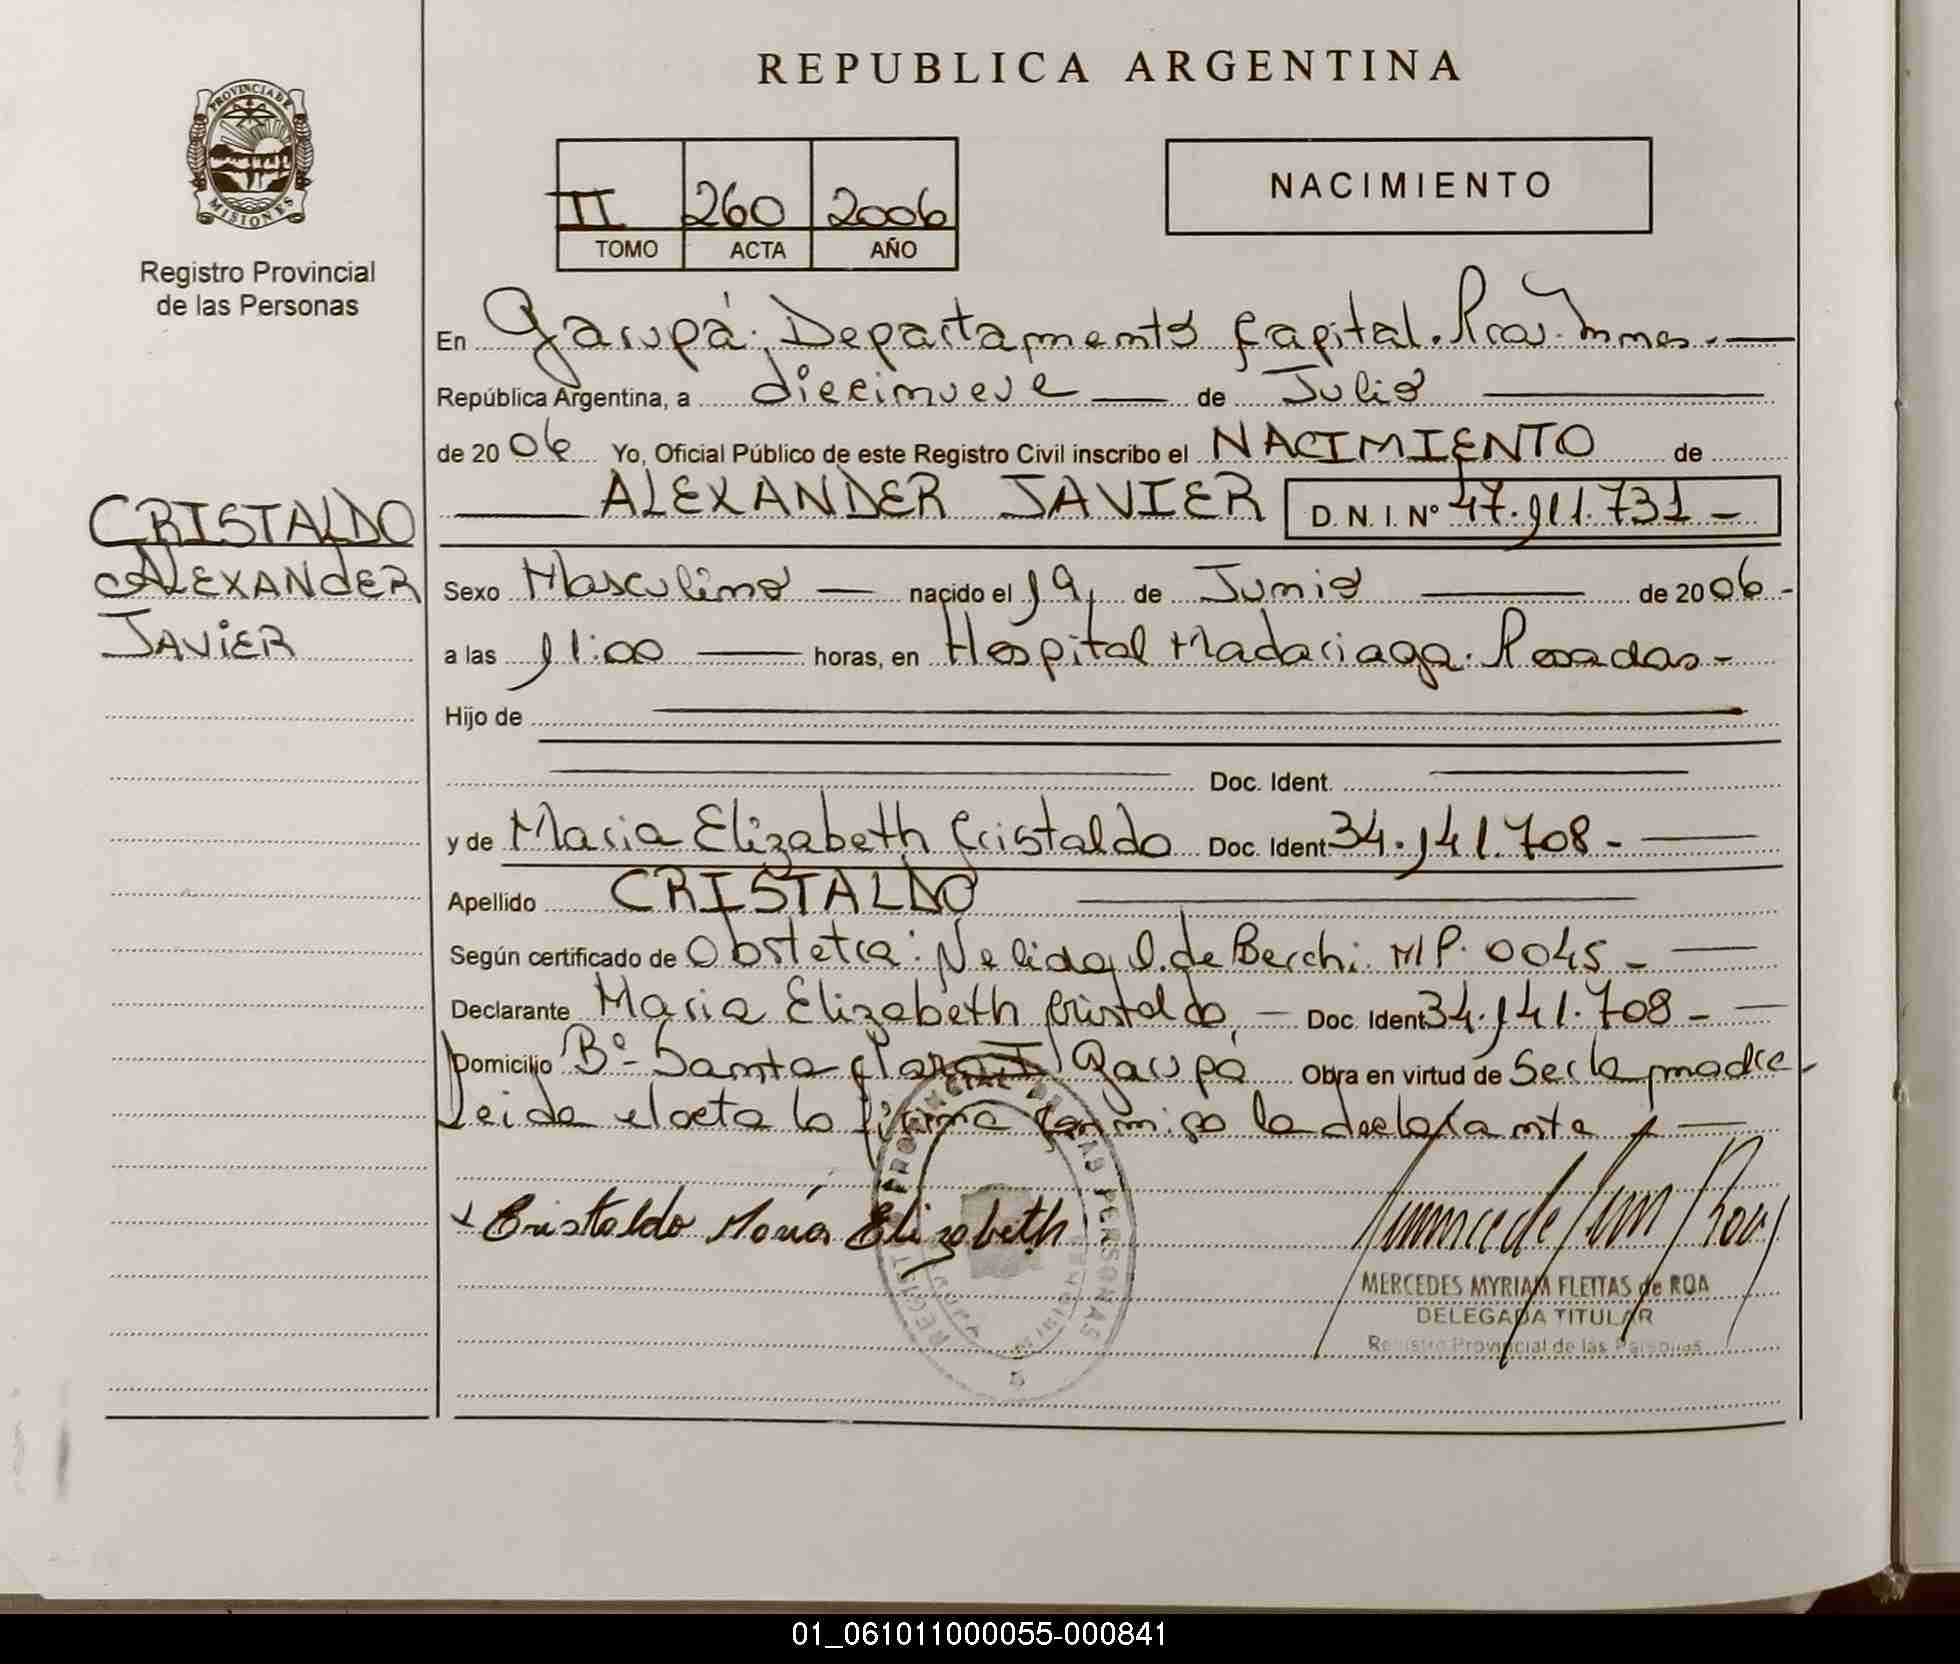 REPUBLICA ARGENTINA
PROVINCIA DE
MISIONES
Registro Provincial
de las Personas
II 260 2006
TOMO ACTA AÑO
NACIMIENTO
En Garupá, Departamento Capital. Pcia. Mnes. —
República Argentina, a diecinueve — de Julio —
de 2006 Yo, Oficial Público de este Registro Civil inscribo el NACIMIENTO de
— ALEXANDER JAVIER D. N. I. Nº 47.911.731 -
CRISTALDO
ALEXANDER
JAVIER
Sexo Masculino — nacido el 19 de Junio — de 2006 -
a las 11:00 — horas, en Hospital Madariaga. Posadas -
Hijo de —
— Doc. Ident. —
y de Maria Elizabeth Cristaldo Doc. Ident 34.141.708 - —
Apellido CRISTALDO —
Según certificado de Obstetra: Nelida de Berchi. MP. 0045 - —
Declarante Maria Elizabeth Cristaldo, — Doc. Ident 34.141.708 - —
Domicilio Bº Santa Clara I Garupá Obra en virtud de Ser la madre -
Leida el acta la firma conmigo la declarante —
x Cristaldo María Elizabeth
MERCEDES MYRIAM FLEITAS de ROA
DELEGADA TITULAR
Registro Provincial de las Personas
01_061011000055-000841